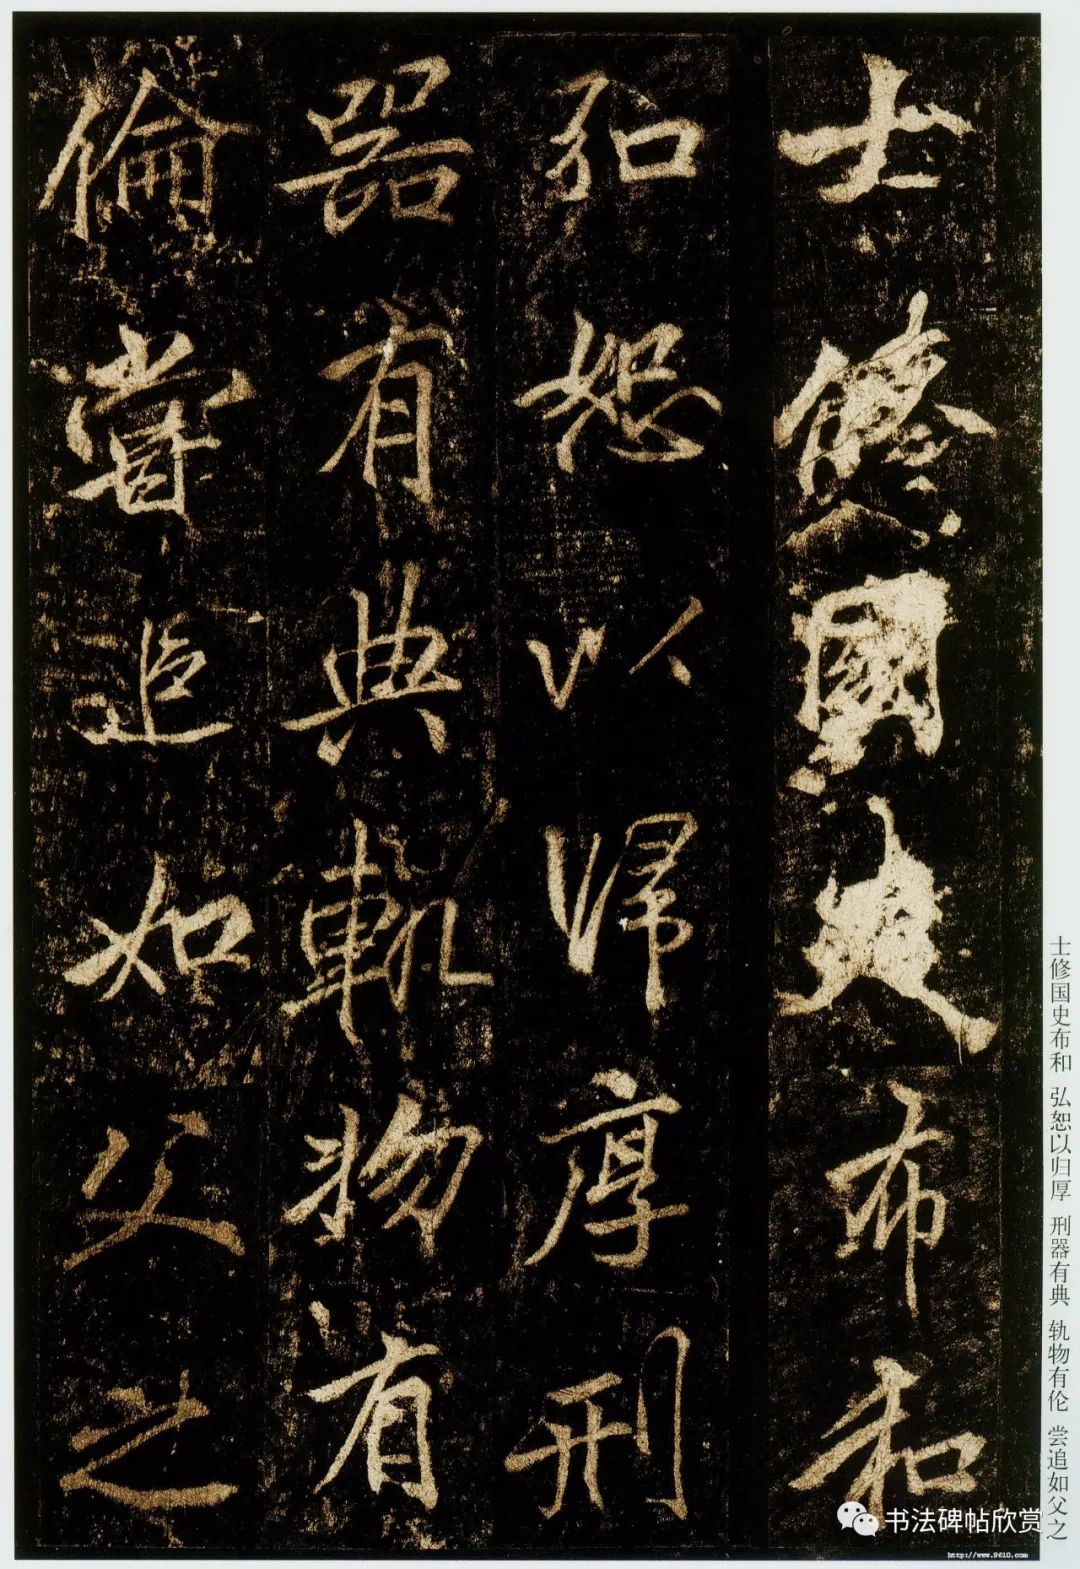 士脩國史布和
弘恕以歸厚刑
器有典軌物有
倫嘗追如父之
士修国史布和 弘恕以归厚 刑器有典 轨物有伦 尝追如父之
书法碑帖欣赏
http://www.9610.com